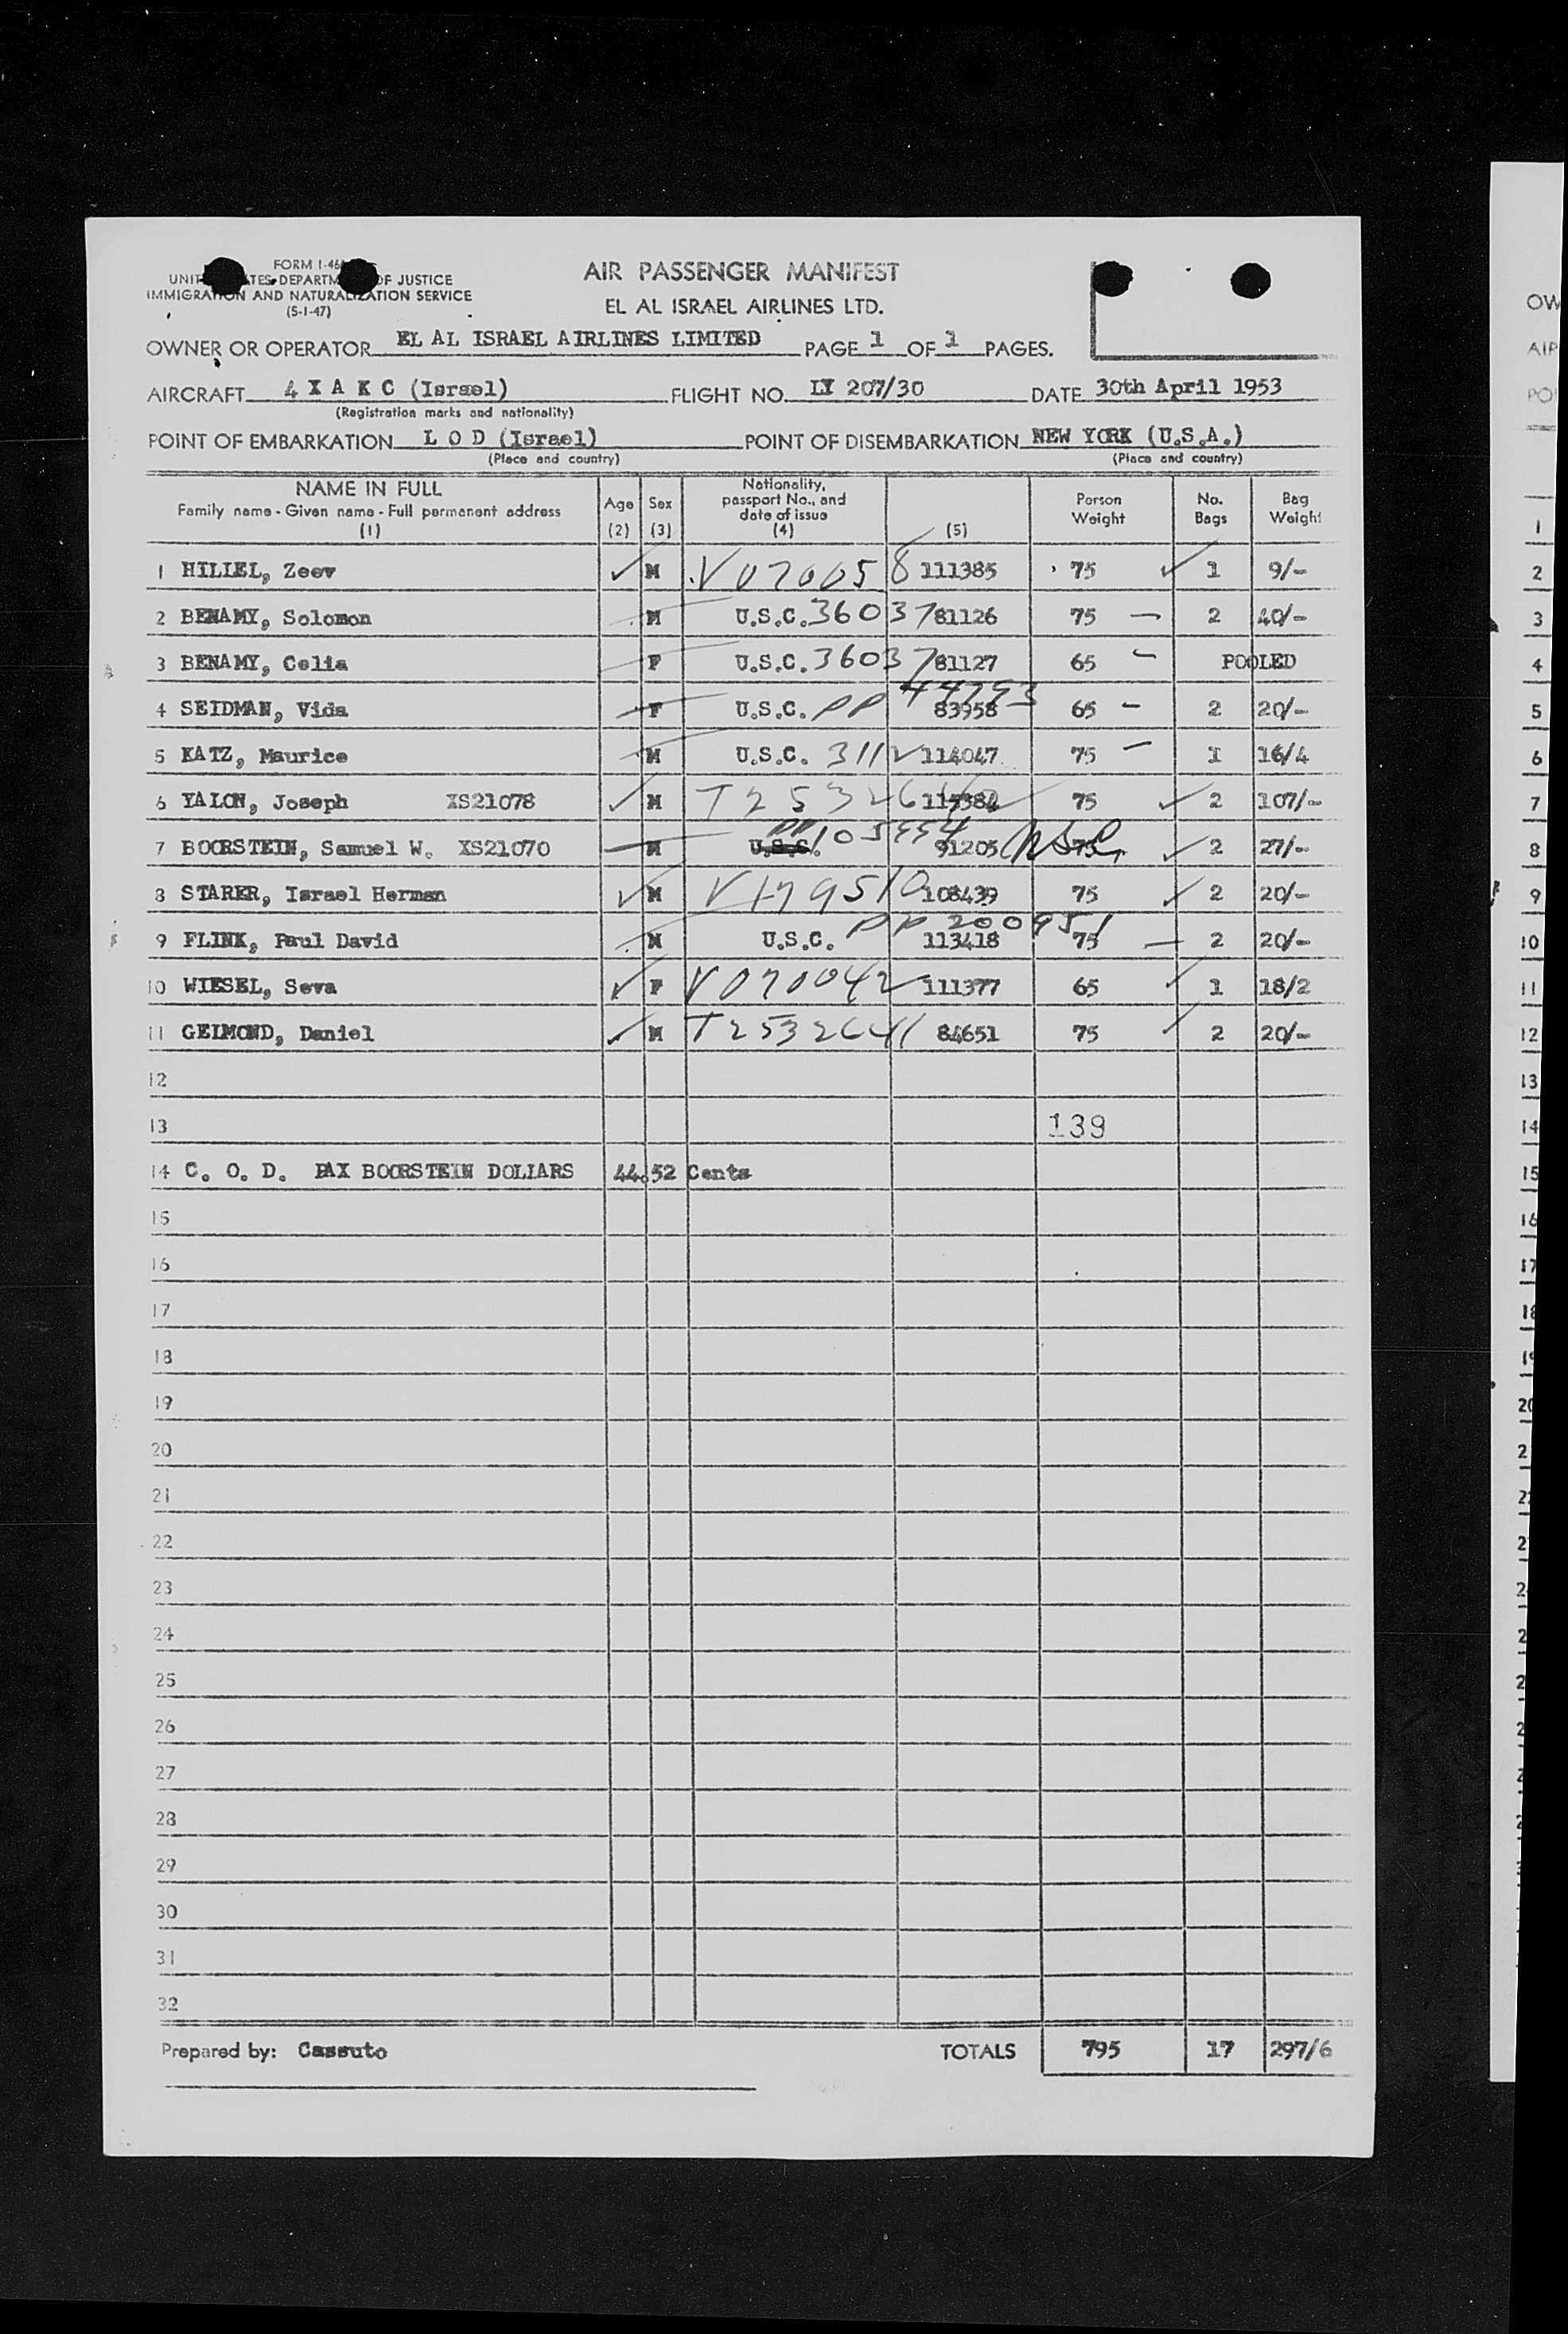 FORM I-46
UNITED STATES DEPARTMENT OF JUSTICE
IMMIGRATION AND NATURALIZATION SERVICE
(5-1-47)
AIR PASSENGER MANIFEST
EL AL ISRAEL AIRLINES LTD.
OWNER OR OPERATOR EL AL ISRAEL AIRLINES LIMITED PAGE 1 OF 1 PAGES.
AIRCRAFT 4 X A K C (Israel) FLIGHT NO. LY 207/30 DATE 30th April 1953
(Registration marks and nationality)
POINT OF EMBARKATION L O D (Israel) POINT OF DISEMBARKATION NEW YORK (U.S.A.)
(Place and country) (Place and country)
NAME IN FULL Family name - Given name - Full permanent address (1) Age (2) Sex (3) Nationality, passport No., and date of issue (4) (5) Person Weight No. Bags Bag Weight
1 HILLEL, Zeev M V070058 111385 75 1 9/-
2 BENAMY, Solomon M U.S.C. 36037 81126 75 2 40/-
3 BENAMY, Celia F U.S.C. 36037 81127 65 POOLED
4 SEIDMAN, Vida F U.S.C. PP 44793 83958 65 2 20/-
5 KATZ, Maurice M U.S.C. 3112 114047 75 1 16/4
6 YALON, Joseph XS21078 M 115384 75 2 107/-
7 BOORSTEIN, Samuel W. XS21070 M U.S.C. PP 91205 75 2 27/-
8 STARER, Israel Herman M V179510 108439 75 2 20/-
9 FLINK, Paul David M U.S.C. PP 200951 113418 75 2 20/-
10 WIESEL, Seva F V070042 111377 65 1 18/2
11 GELMOND, Daniel M T2532641 84651 75 2 20/-
12
13 139
14 C. O. D. PAX BOORSTEIN DOLLARS 44.52 Cents
15
16
17
18
19
20
21
22
23
24
25
26
27
28
29
30
31
32
Prepared by: Cassuto TOTALS 795 17 297/6